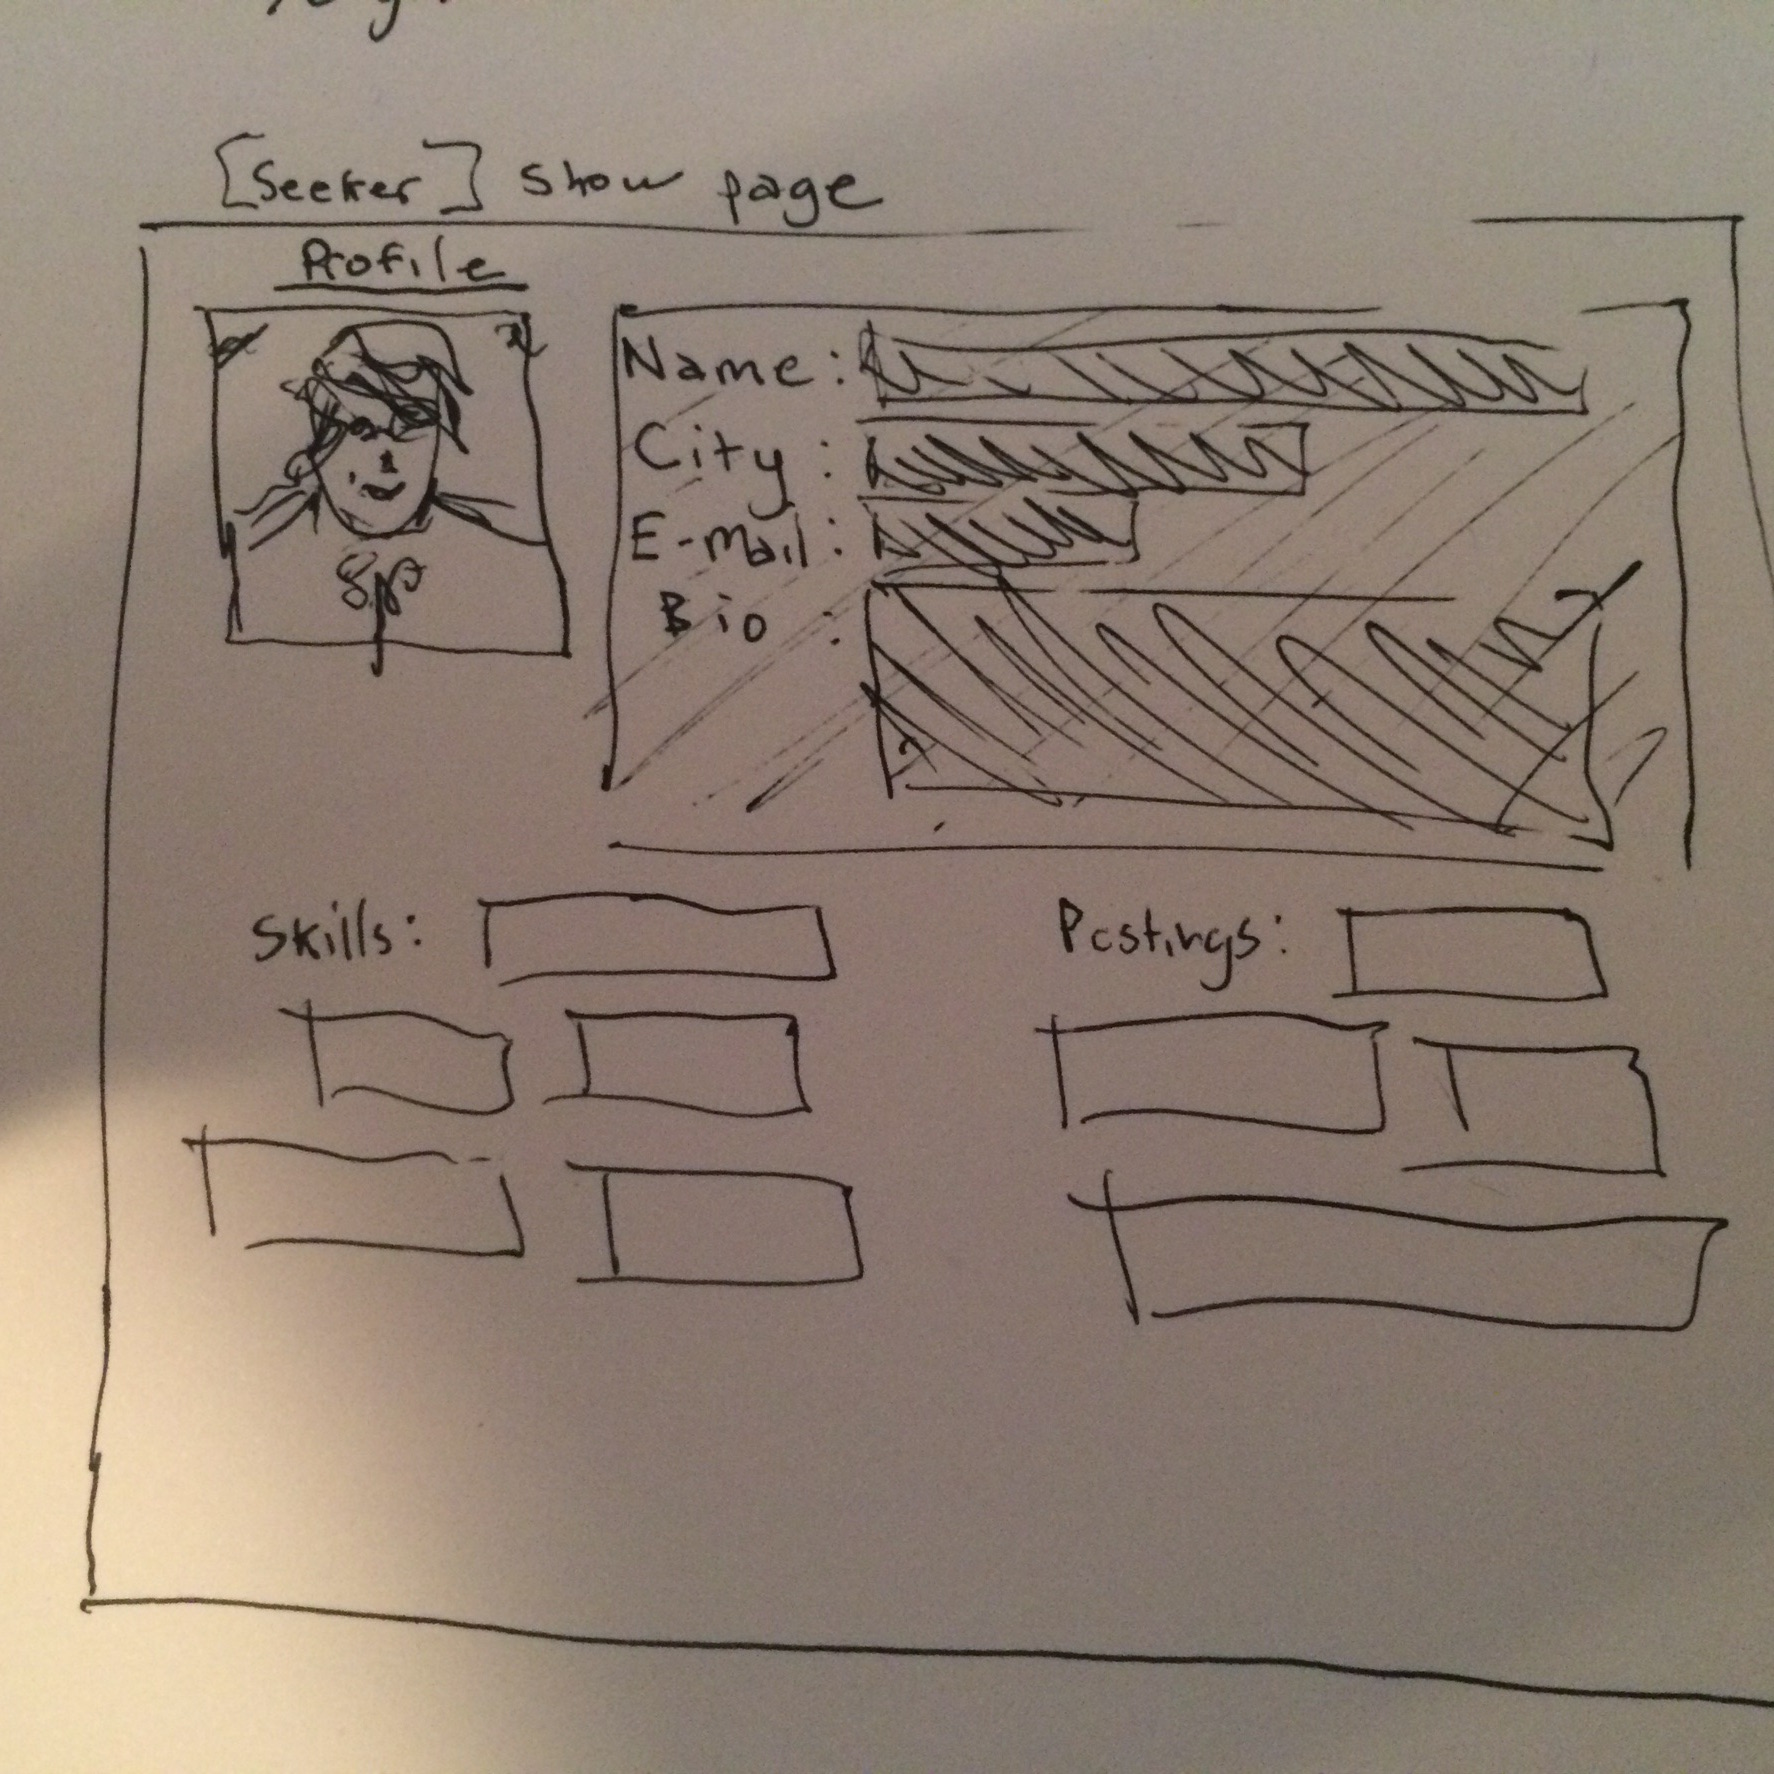 [Seeker] show page
Profile
Name:
City:
E-mail:
Bio:
Skills:
Postings: